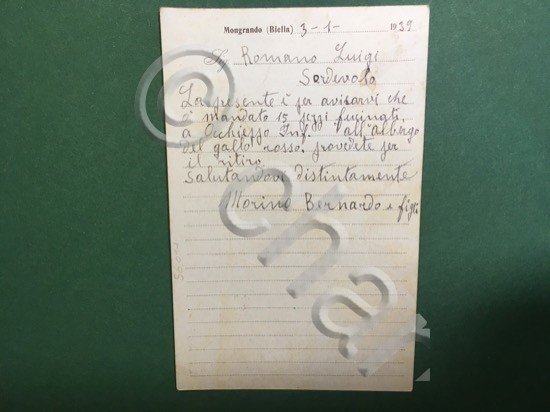 Mongrando (Biella) 3-1- 1939
Sig Romano Luigi
Sordevolo
La presente è per avisarvi che
ò mandato 15 pezzi fucinati
a Occhieppo Inf. all'albergo
del gallo rosso. provedete per
il ritiro
Salutandovi distintamente
Morino Bernardo e figli